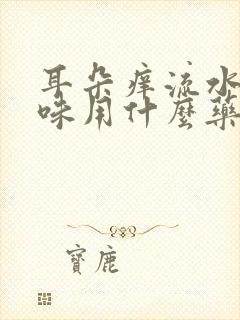 耳朵痒流水
味用什麽藥
寶鹿